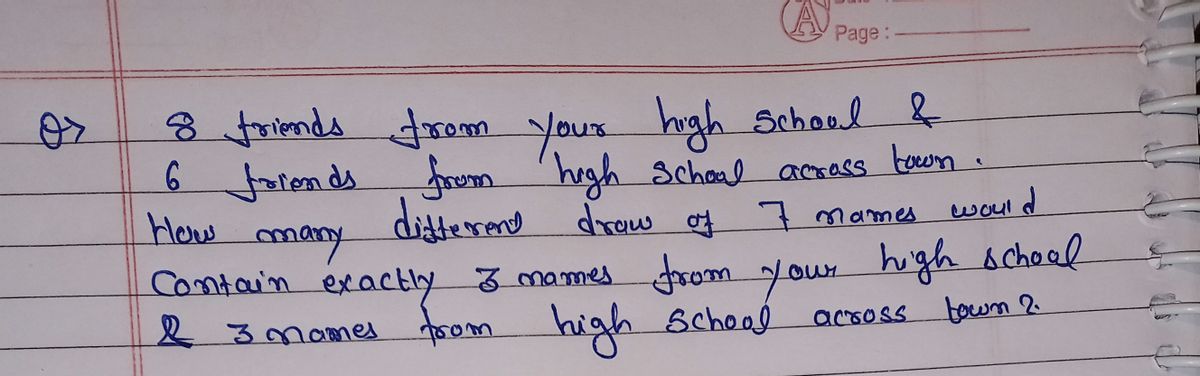 Page :
Q> 8 friends from your high school &
6 friends from high school across town.
How many different draw of 7 names would
Contain exactly 3 names from your high school
& 3 names from high school across town ?